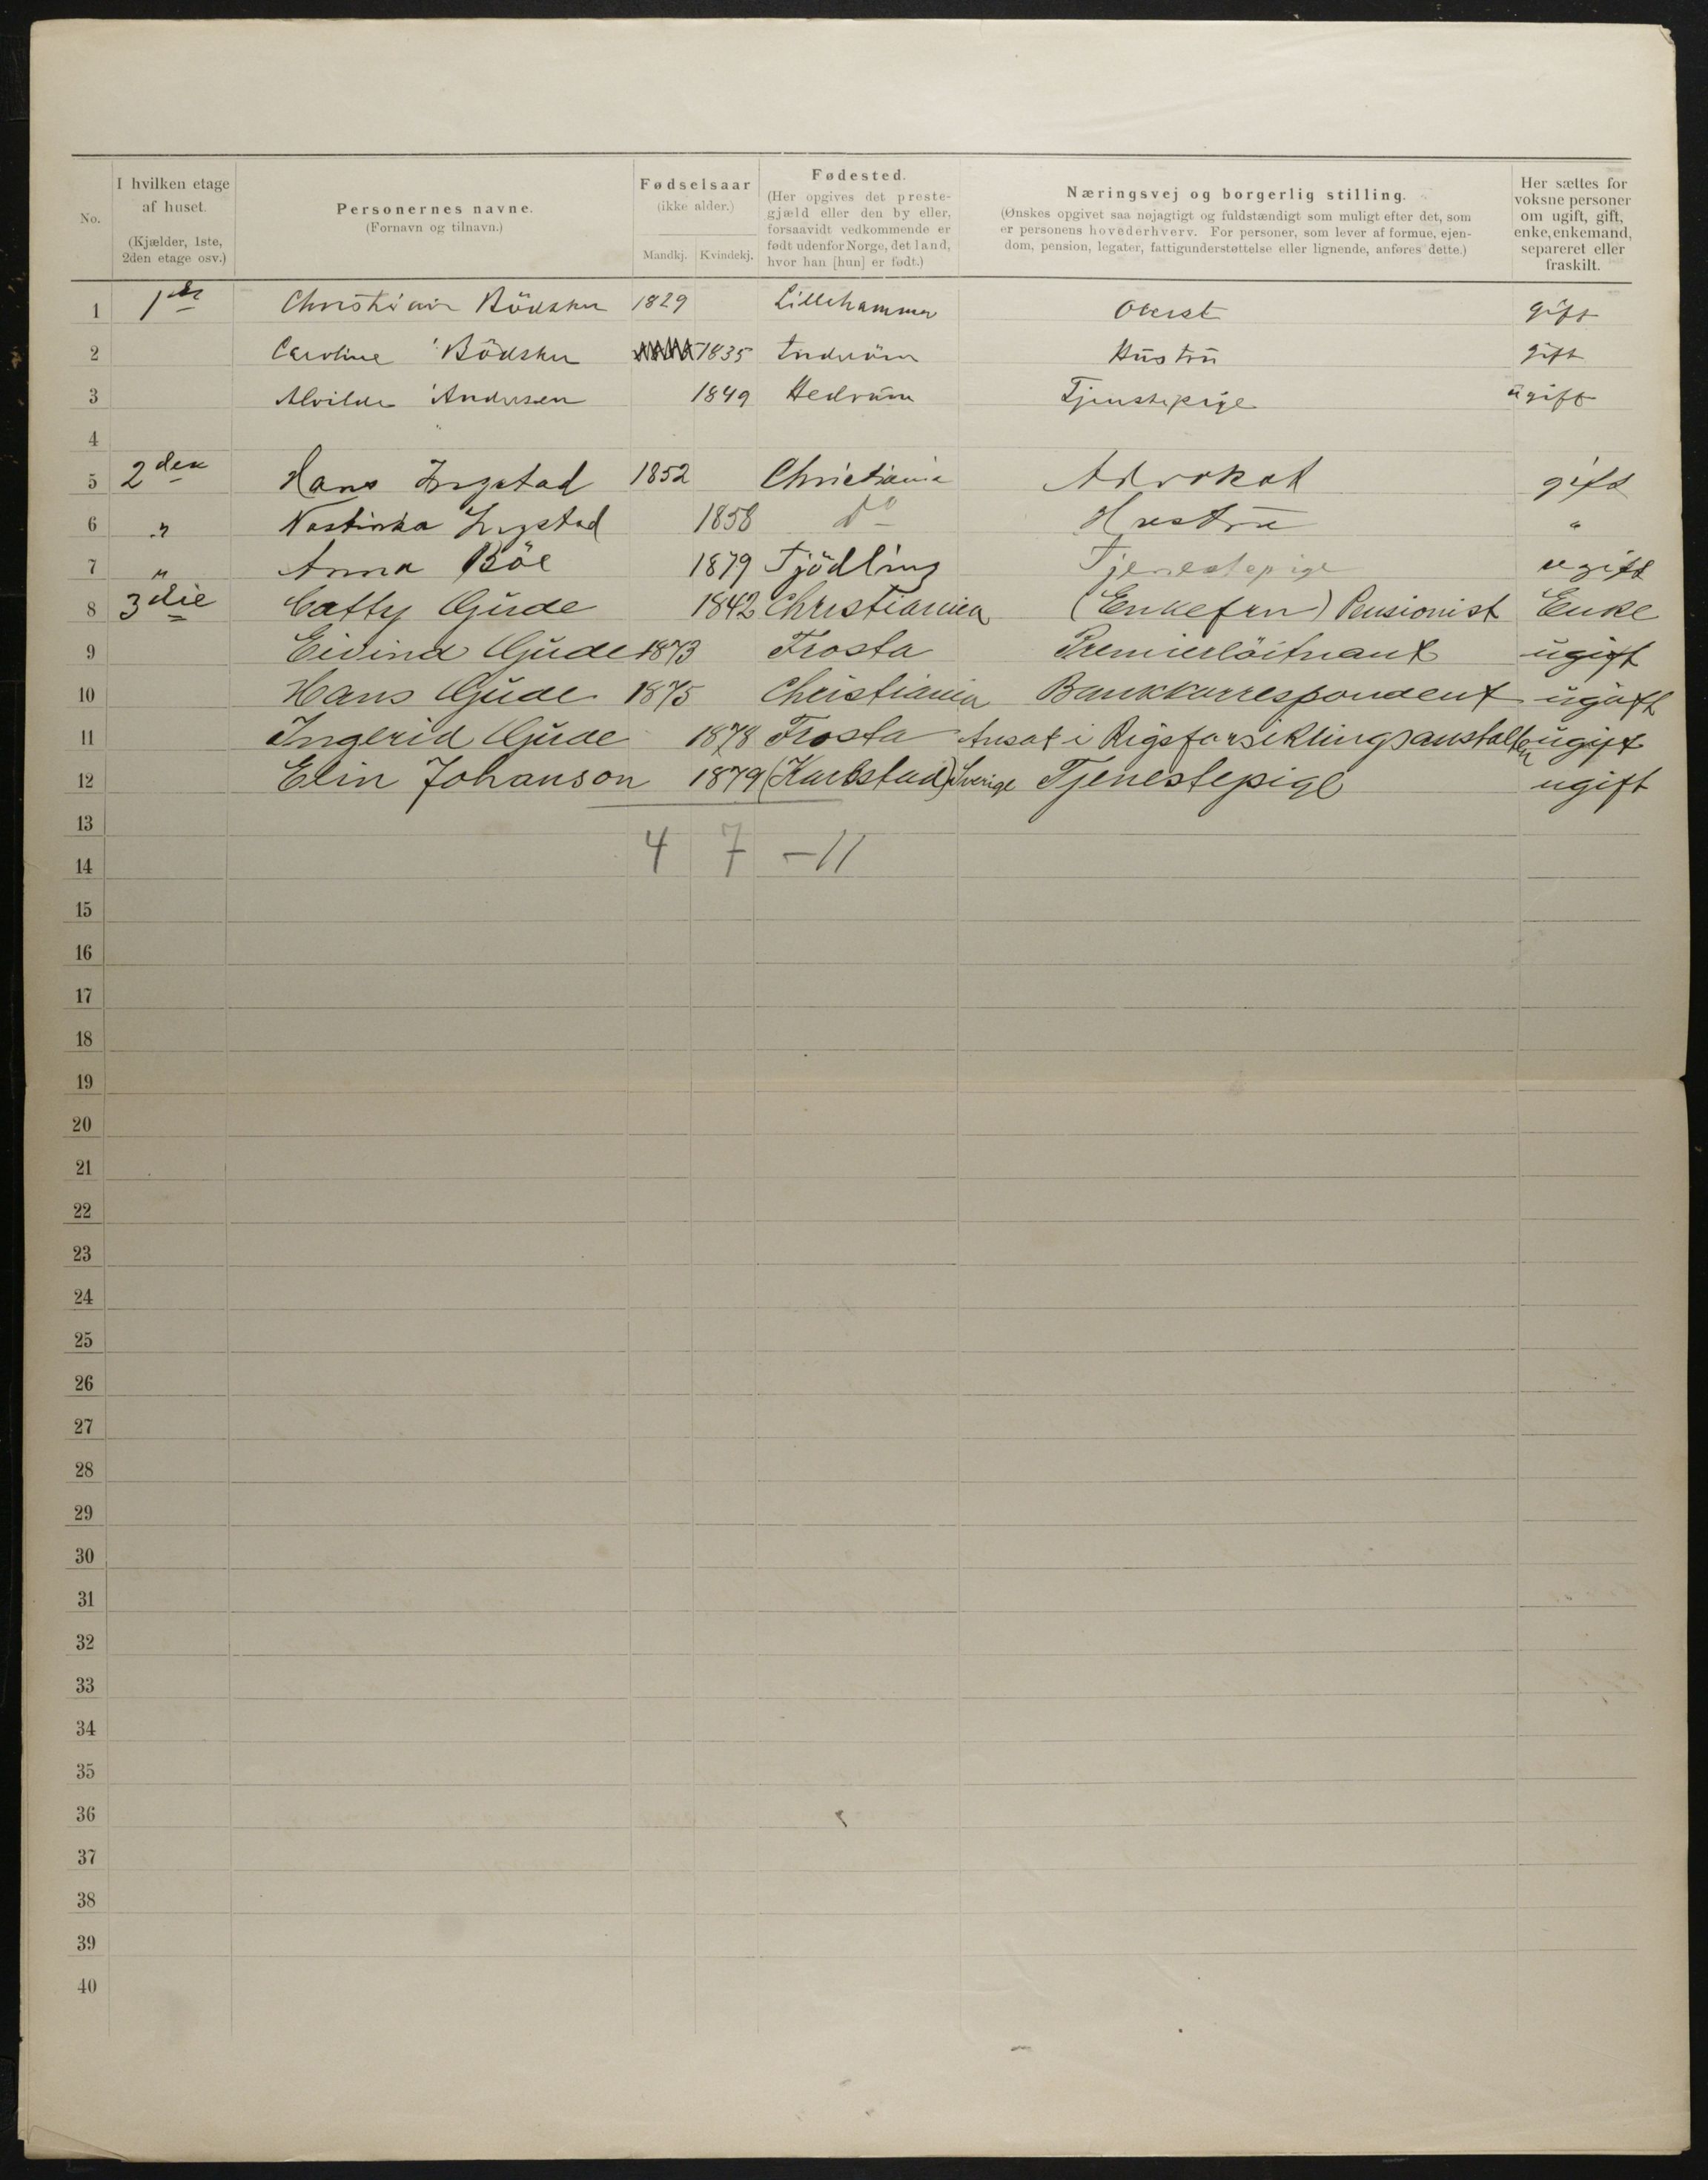 No. I hvilken etage af huset. (Kjælder, 1ste, 2den etage osv.) Personernes navne. (Fornavn og tilnavn.) Fødselsaar (ikke alder.) Mandkj. Kvindekj. Fødested. (Her opgives det prestegjæld eller den by eller, forsaavidt vedkommende er født udenfor Norge, det land, hvor han [hun] er født.) Næringsvej og borgerlig stilling. (Ønskes opgivet saa nøjagtigt og fuldstændigt som muligt efter det, som er personens hovederhverv. For personer, som lever af formue, ejendom, pension, legater, fattigunderstøttelse eller lignende, anføres dette.) Her sættes for voksne personer om ugift, gift, enke, enkemand, separeret eller fraskilt.
1 1ste Christian Bödtker 1829 Lillehammer Oberst gift
2 Caroline Bödtker 1835 Hustru gift
3 Alvilde Andersen 1849 Hedrum Tjenestepige ugift
4
5 2den Hans Ingstad 1852 Christiania Advokat gift
6 " Ingstad 1858 do Hustru "
7 " Anna Böe 1879 Tjödling Tjenestepige ugift
8 3die Catty Gude 1842 Christiania (Enkefru) Pensionist Enke
9 Eivind Gude 1873 Frosta Premierlöitnant ugift
10 Hans Gude 1875 Christiania Bankkorrespondent ugift
11 Ingerid Gude 1878 Frosta Ansat i Rigsforsikringsanstalten ugift
12 Elin Johanson 1879 (Karlstad) Sverige Tjenestepige ugift
13
14 4 7 – 11
15
16
17
18
19
20
21
22
23
24
25
26
27
28
29
30
31
32
33
34
35
36
37
38
39
40